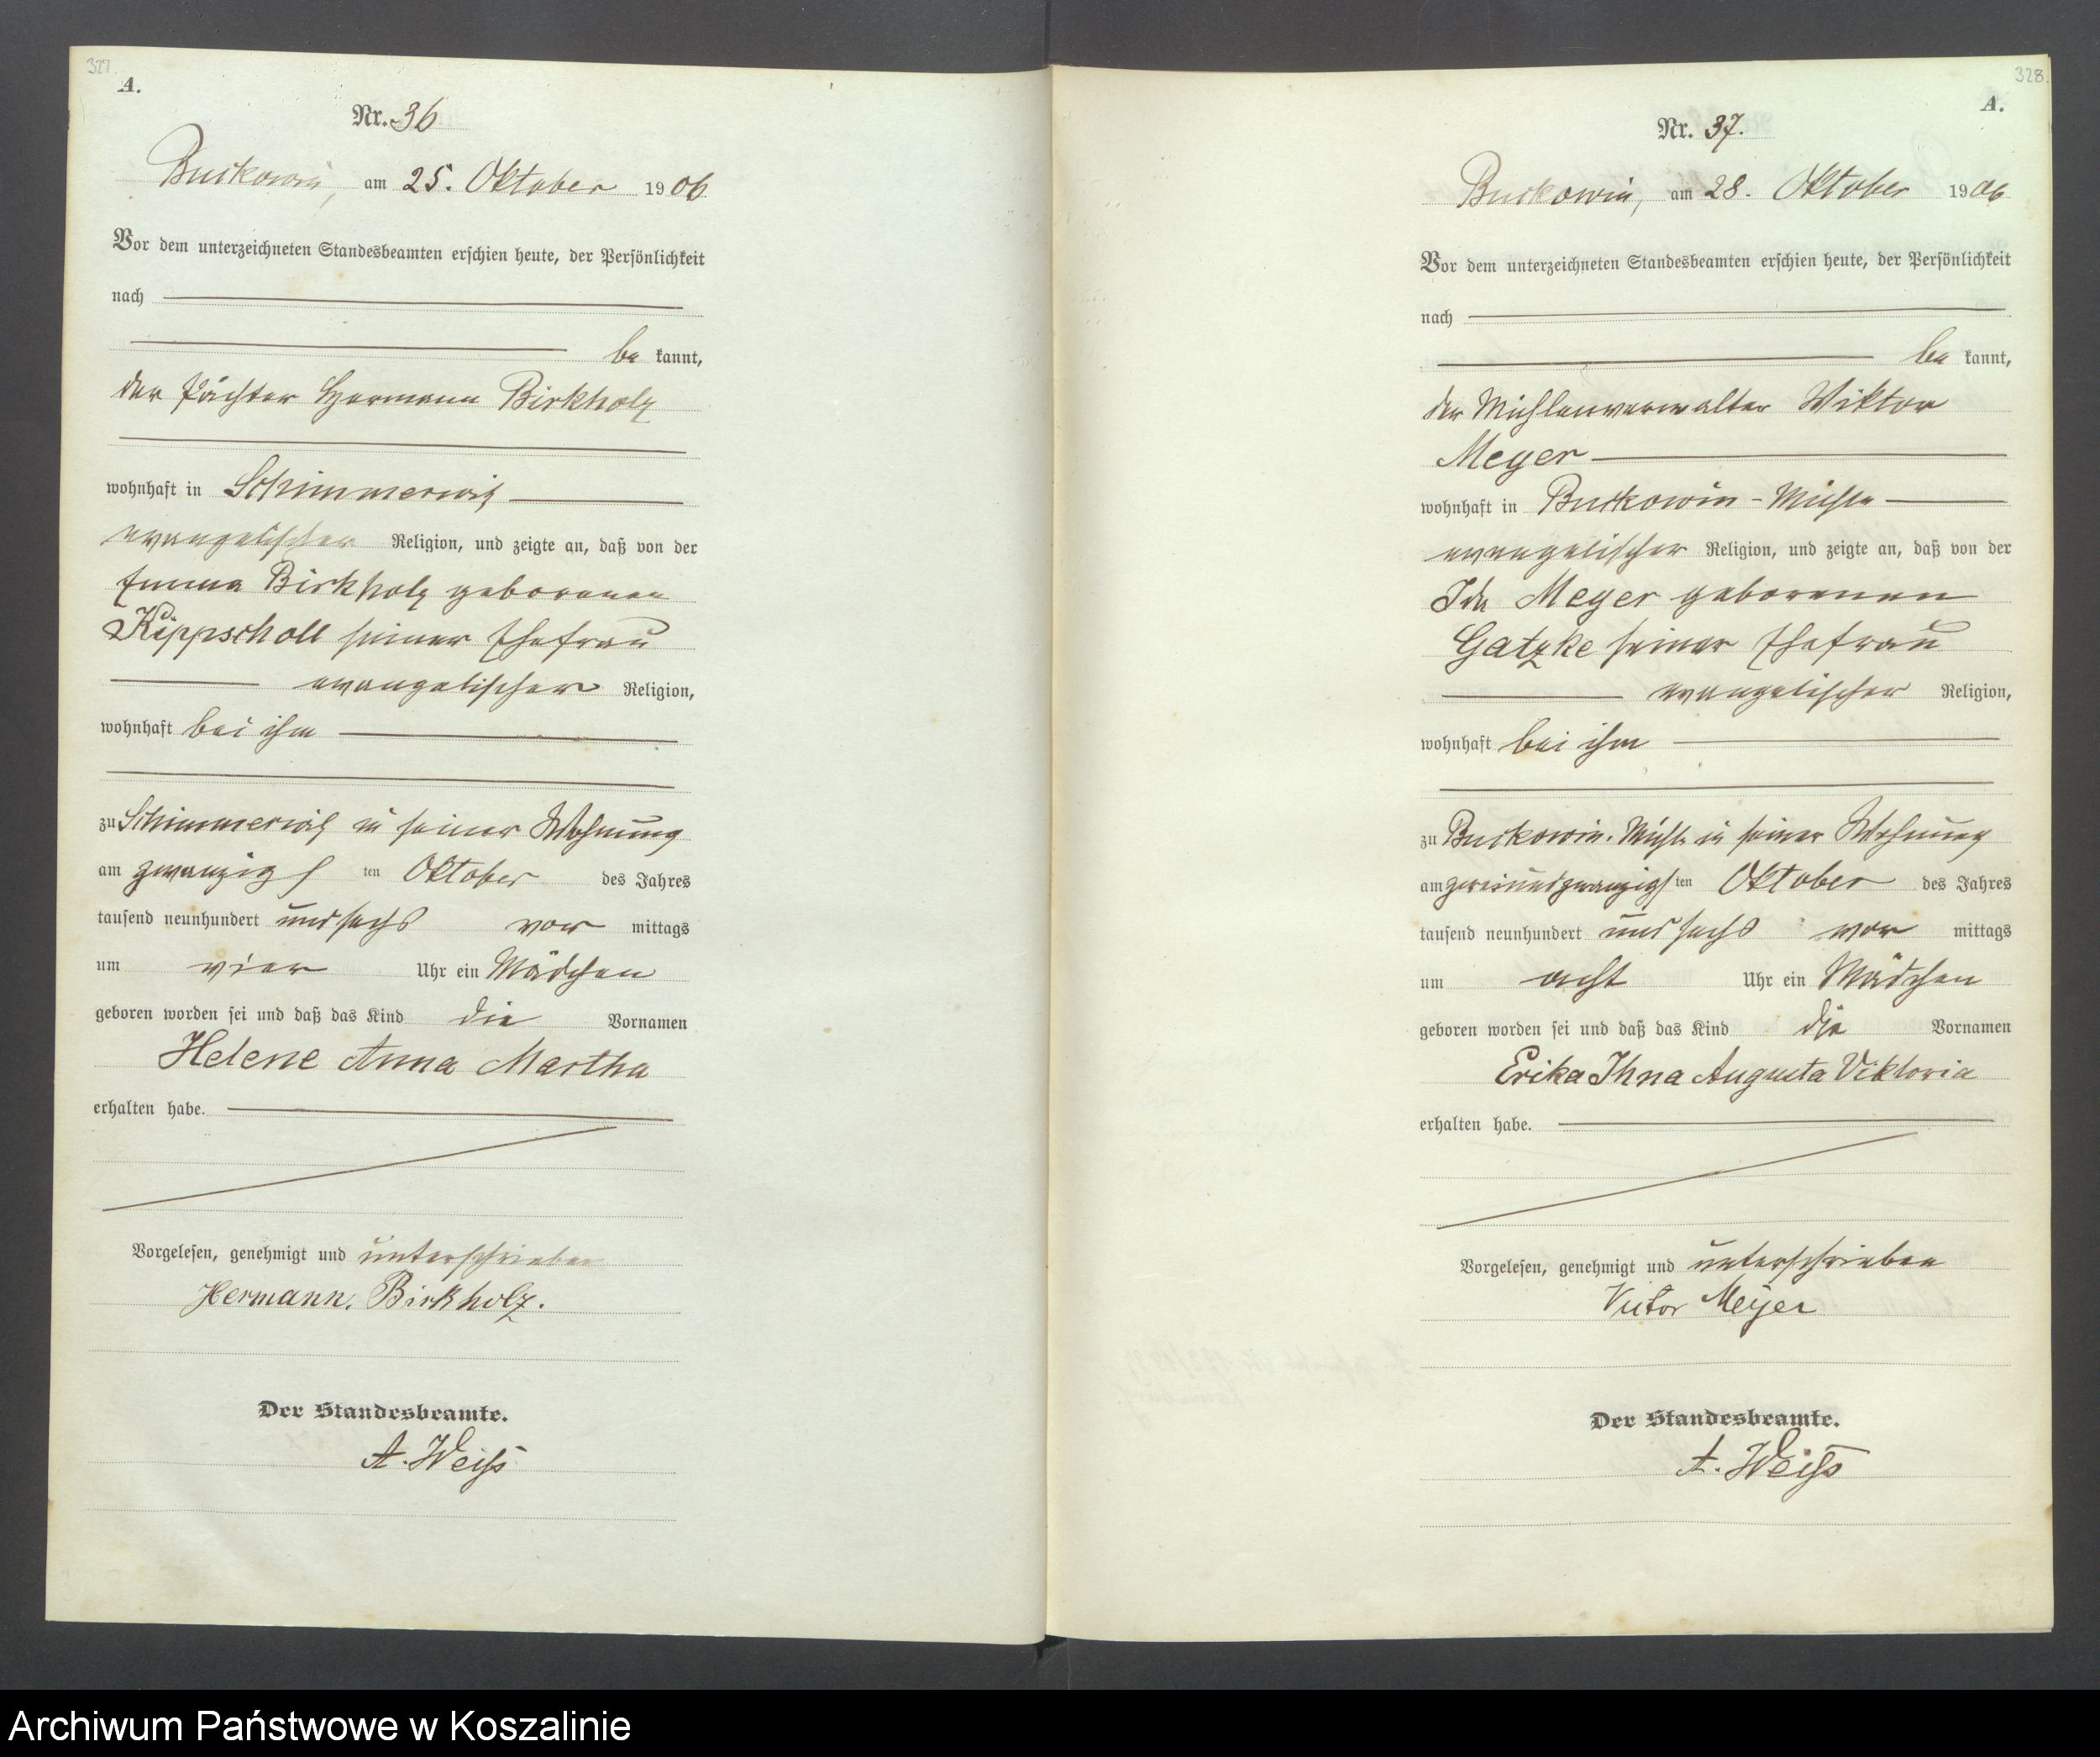 327.
A.
Nr. 36
Buckowin, am 25. Oktober 1906
Vor dem unterzeichneten Standesbeamten erschien heute, der Persönlichkeit
nach
be kannt,
der Pächter Hermann Birkholz
wohnhaft in Schimmerwitz
evangelischer Religion, und zeigte an, daß von der
Emma Birkholz geborenen
Kippscholl seiner Ehefrau
evangelischer Religion,
wohnhaft bei ihm
zu Schimmerwitz in seiner Wohnung
am zwanzigs ten Oktober des Jahres
tausend neunhundert und sechs vor mittags
um vier Uhr ein Mädchen
geboren worden sei und daß das Kind die Vornamen
Helene Anna Martha
erhalten habe.
Vorgelesen, genehmigt und unterschrieben
Hermann. Birkholz.
Der Standesbeamte.
A. Weiß
328.
A.
Nr. 37.
Buckowin, am 28. Oktober 1906
Vor dem unterzeichneten Standesbeamten erschien heute, der Persönlichkeit
nach
be kannt,
der Mühlenverwalter Wiktor
Meyer
wohnhaft in Buckowin-Mühle
evangelischer Religion, und zeigte an, daß von der
Ida Meyer geborenen
Gatzke seiner Ehefrau
evangelischer Religion,
wohnhaft bei ihm
zu Buckowin-Mühle in seiner Wohnung
am zweiundzwanzigs ten Oktober des Jahres
tausend neunhundert und sechs vor mittags
um acht Uhr ein Mädchen
geboren worden sei und daß das Kind die Vornamen
Erika Ihna Augusta Viktoria
erhalten habe.
Vorgelesen, genehmigt und unterschrieben
Victor Meyer
Der Standesbeamte.
A. Weiß
Archiwum Państwowe w Koszalinie